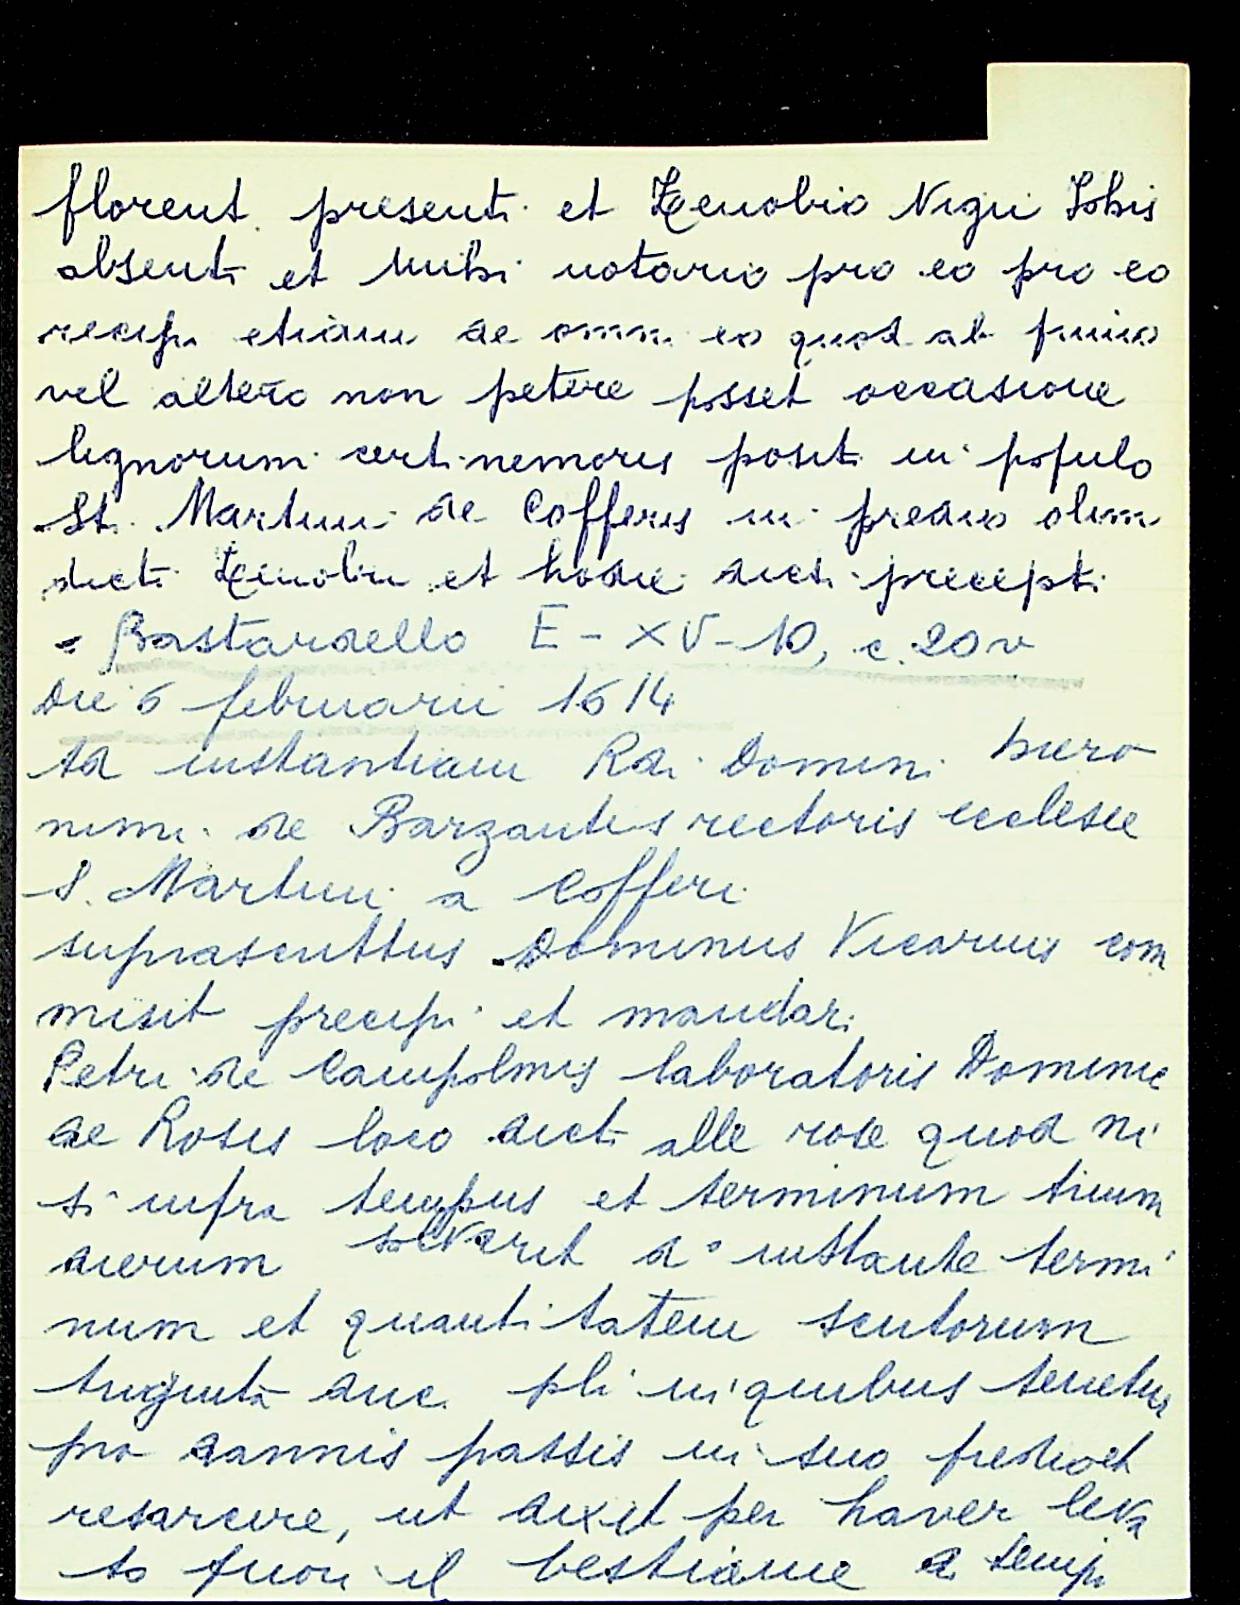 florent. presenti et Zenobio Nigri Iohis
absenti et mihi notario pro eo pro eo
recip. etiam de omni eo quod ab primo
vel altero non petere posset occasione
lignorum certi nemoris positi in populo
Sti. Martini de Cofferis in predio olim
dicti Zenobii et hodie dicti precepti
= Bastardello E - XV - 10, c. 20v
Die 6 februarii 1614
Ad instantiam Rdi Domini hiero
nimi de Barzantis rectoris ecclesie
S. Martini a Cofferi
suprascrittus Dominus Vicarius com
misit precipi et mandari
Petri de Campolmis laboratoris Dominie
de Rosis loco dicti alle rose quod ni
si infra tempus et terminum trium
dierum solverit do instante termi
num et quantitatem scutorum
triginta duc. pli in quibus tenetur
pro dannis passis in suo predio et
resarcire, ut dixit per haver leva
to fuori il bestiame a temp